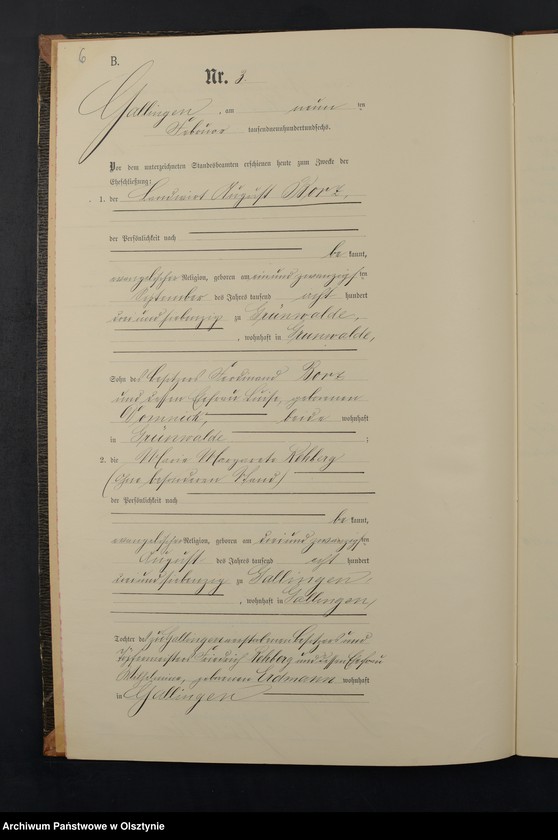 6
B.
Nr. 3
Gallingen, am neun ten
Februar tausendneunhundertundsechs.
Vor dem unterzeichneten Standesbeamten erschienen heute zum Zwecke der
Eheschließung:
1. der Landwirt August Borz,
der Persönlichkeit nach
be kannt,
evangelischer Religion, geboren am einundzwanzigsten
September des Jahres tausend acht hundert
dreiundsiebenzig zu Grünwalde,
, wohnhaft in Grünwalde,
Sohn des Besitzers Ferdinand Borz
und dessen Ehefrau Luise, geborenen
Domnick, beide wohnhaft
in Grünwalde ;
2. die Maria Margarete Rehberg
(ohne besonderen Stand)
der Persönlichkeit nach
be kannt,
evangelischer Religion, geboren am dreiundzwanzigsten
August des Jahres tausend acht hundert
dreiundsiebenzig zu Gallingen,
, wohnhaft in Gallingen,
Tochter des zu Gallingen verstorbenen Besitzers und
Friedrich Rehberg und dessen Ehefrau
Wilhelmine, geborenen Erdmann wohnhaft
in Gallingen
Archiwum Państwowe w Olsztynie